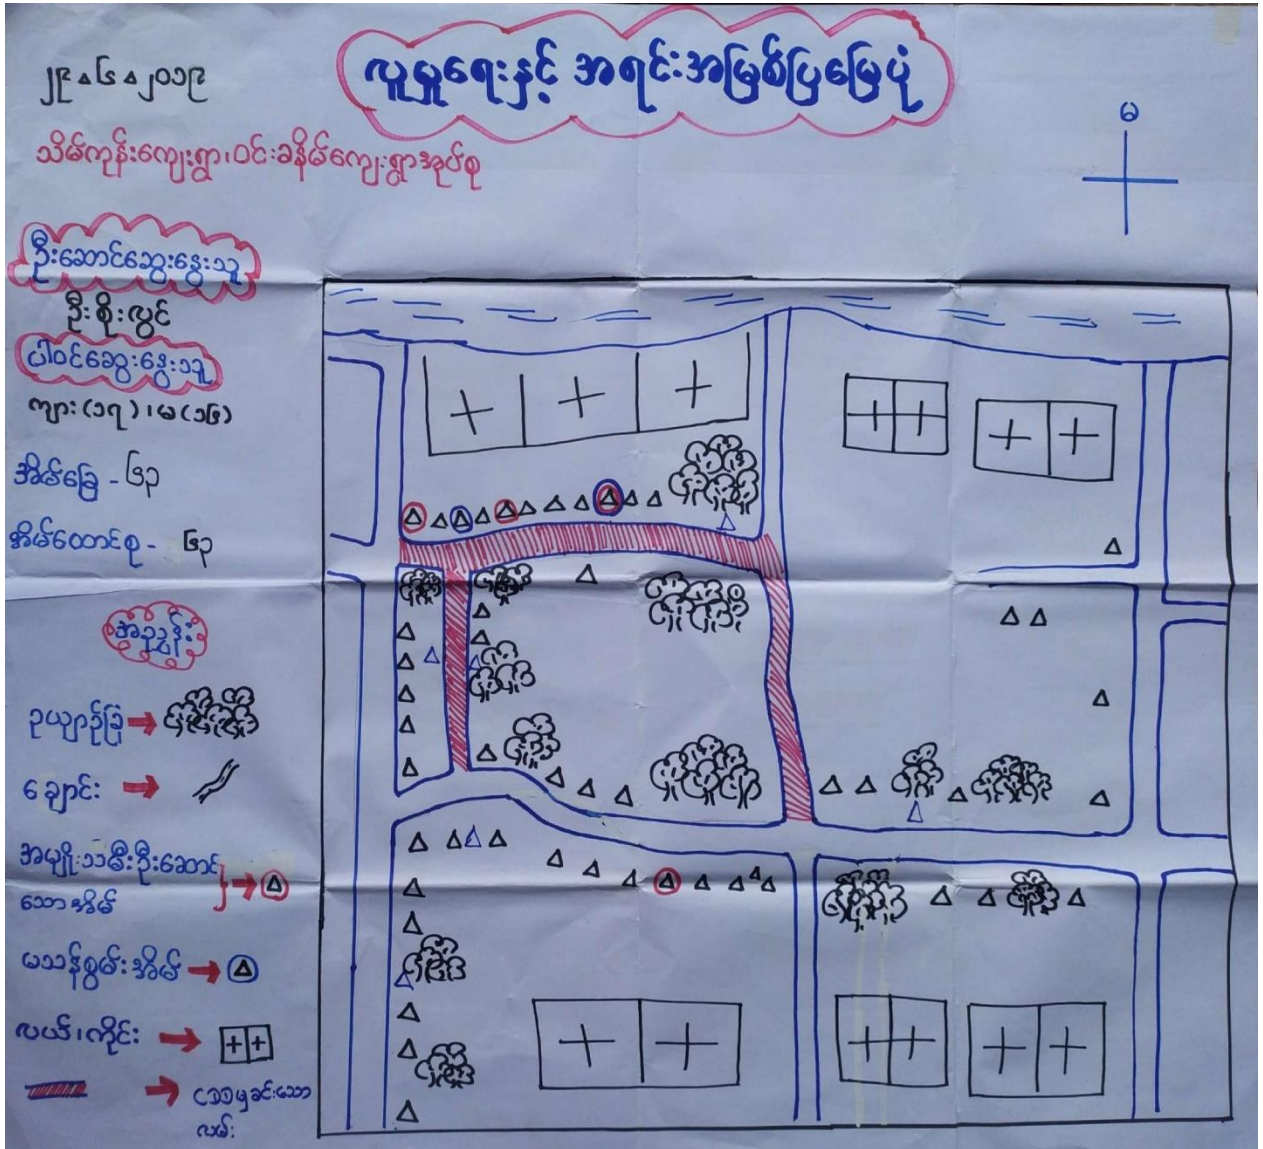 လူမှုရေးနှင့် အရင်းအမြစ်ပြမြေပုံ
၂၉-၆-၂၀၁၉
မ
သိမ်ကုန်းကျေးရွာ၊ ဝင်းခနိမ်ကျေးရွာအုပ်စု
ဦးဆောင်ဆွေးနွေးသူ
ဦးစိုးလွင်
ပါဝင်ဆွေးနွေးသူ
ကျား(၁၇)၊ မ(၁၆)
အိမ်ခြေ - ၆၃
အိမ်ထောင်စု - ၆၃
အညွှန်း
ဥယျာဉ်ခြံ
ချောင်း
အမျိုးသမီးဦးဆောင်
သောအိမ်
မသန်စွမ်းအိမ်
လယ်၊ ကိုင်း
ငသမှခင်းသော
လမ်း